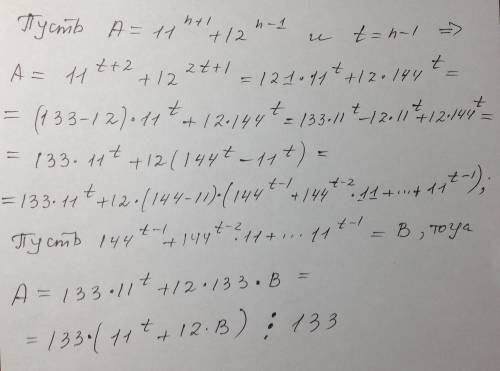 Пусть A = 11^{n+1} + 12^{n-1} и t = n-1 ⇒
A = 11^{t+2} + 12^{2t+1} = 121·11^t + 12·144^t =
= (133-12)·11^t + 12·144^t = 133·11^t - 12·11^t + 12·144^t =
= 133·11^t + 12(144^t - 11^t) =
= 133·11^t + 12·(144-11)·(144^{t-1} + 144^{t-2}·11 + ... + 11^{t-1});
Пусть 144^{t-1} + 144^{t-2}·11 + ... 11^{t-1} = B, тога
A = 133·11^t + 12·133·B =
= 133·(11^t + 12·B) ⋮ 133